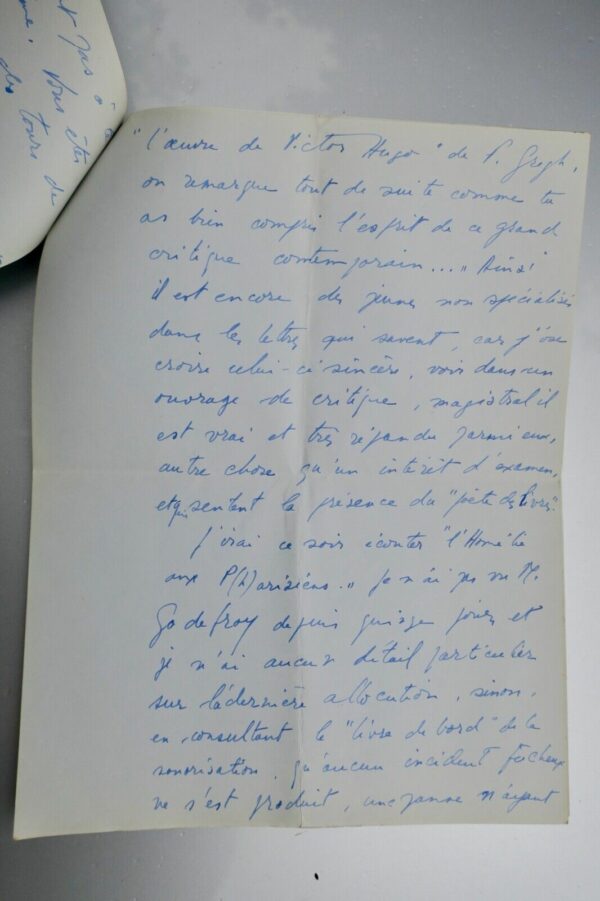 t pas ô
me. Vous êtes
des tours de
"l'œuvre de Victor Hugo" de F. Gregh,
on remarque tout de suite comme tu
as bien compris l'esprit de ce grand
critique contemporain... "Ainsi
il est encore des jeunes non spécialisés
dans les lettres qui savent, car j'ose
croire celui-ci sincère, voir dans un
ouvrage de critique, magistral il
est vrai et très répandu parmi eux,
autre chose qu'un intérêt d'examen,
et qui sentent la présence du "poète des livres".
J'irai ce soir écouter "l'Homélie
aux P(h)arisiens." Je n'ai pas vu M.
Godefroy depuis quinze jours et
je n'ai aucun détail particulier
sur la dernière allocution, sinon,
en consultant le "livre de bord" de la
sonorisation, qu'aucun incident fâcheux
ne s'est produit, une panne n'ayant